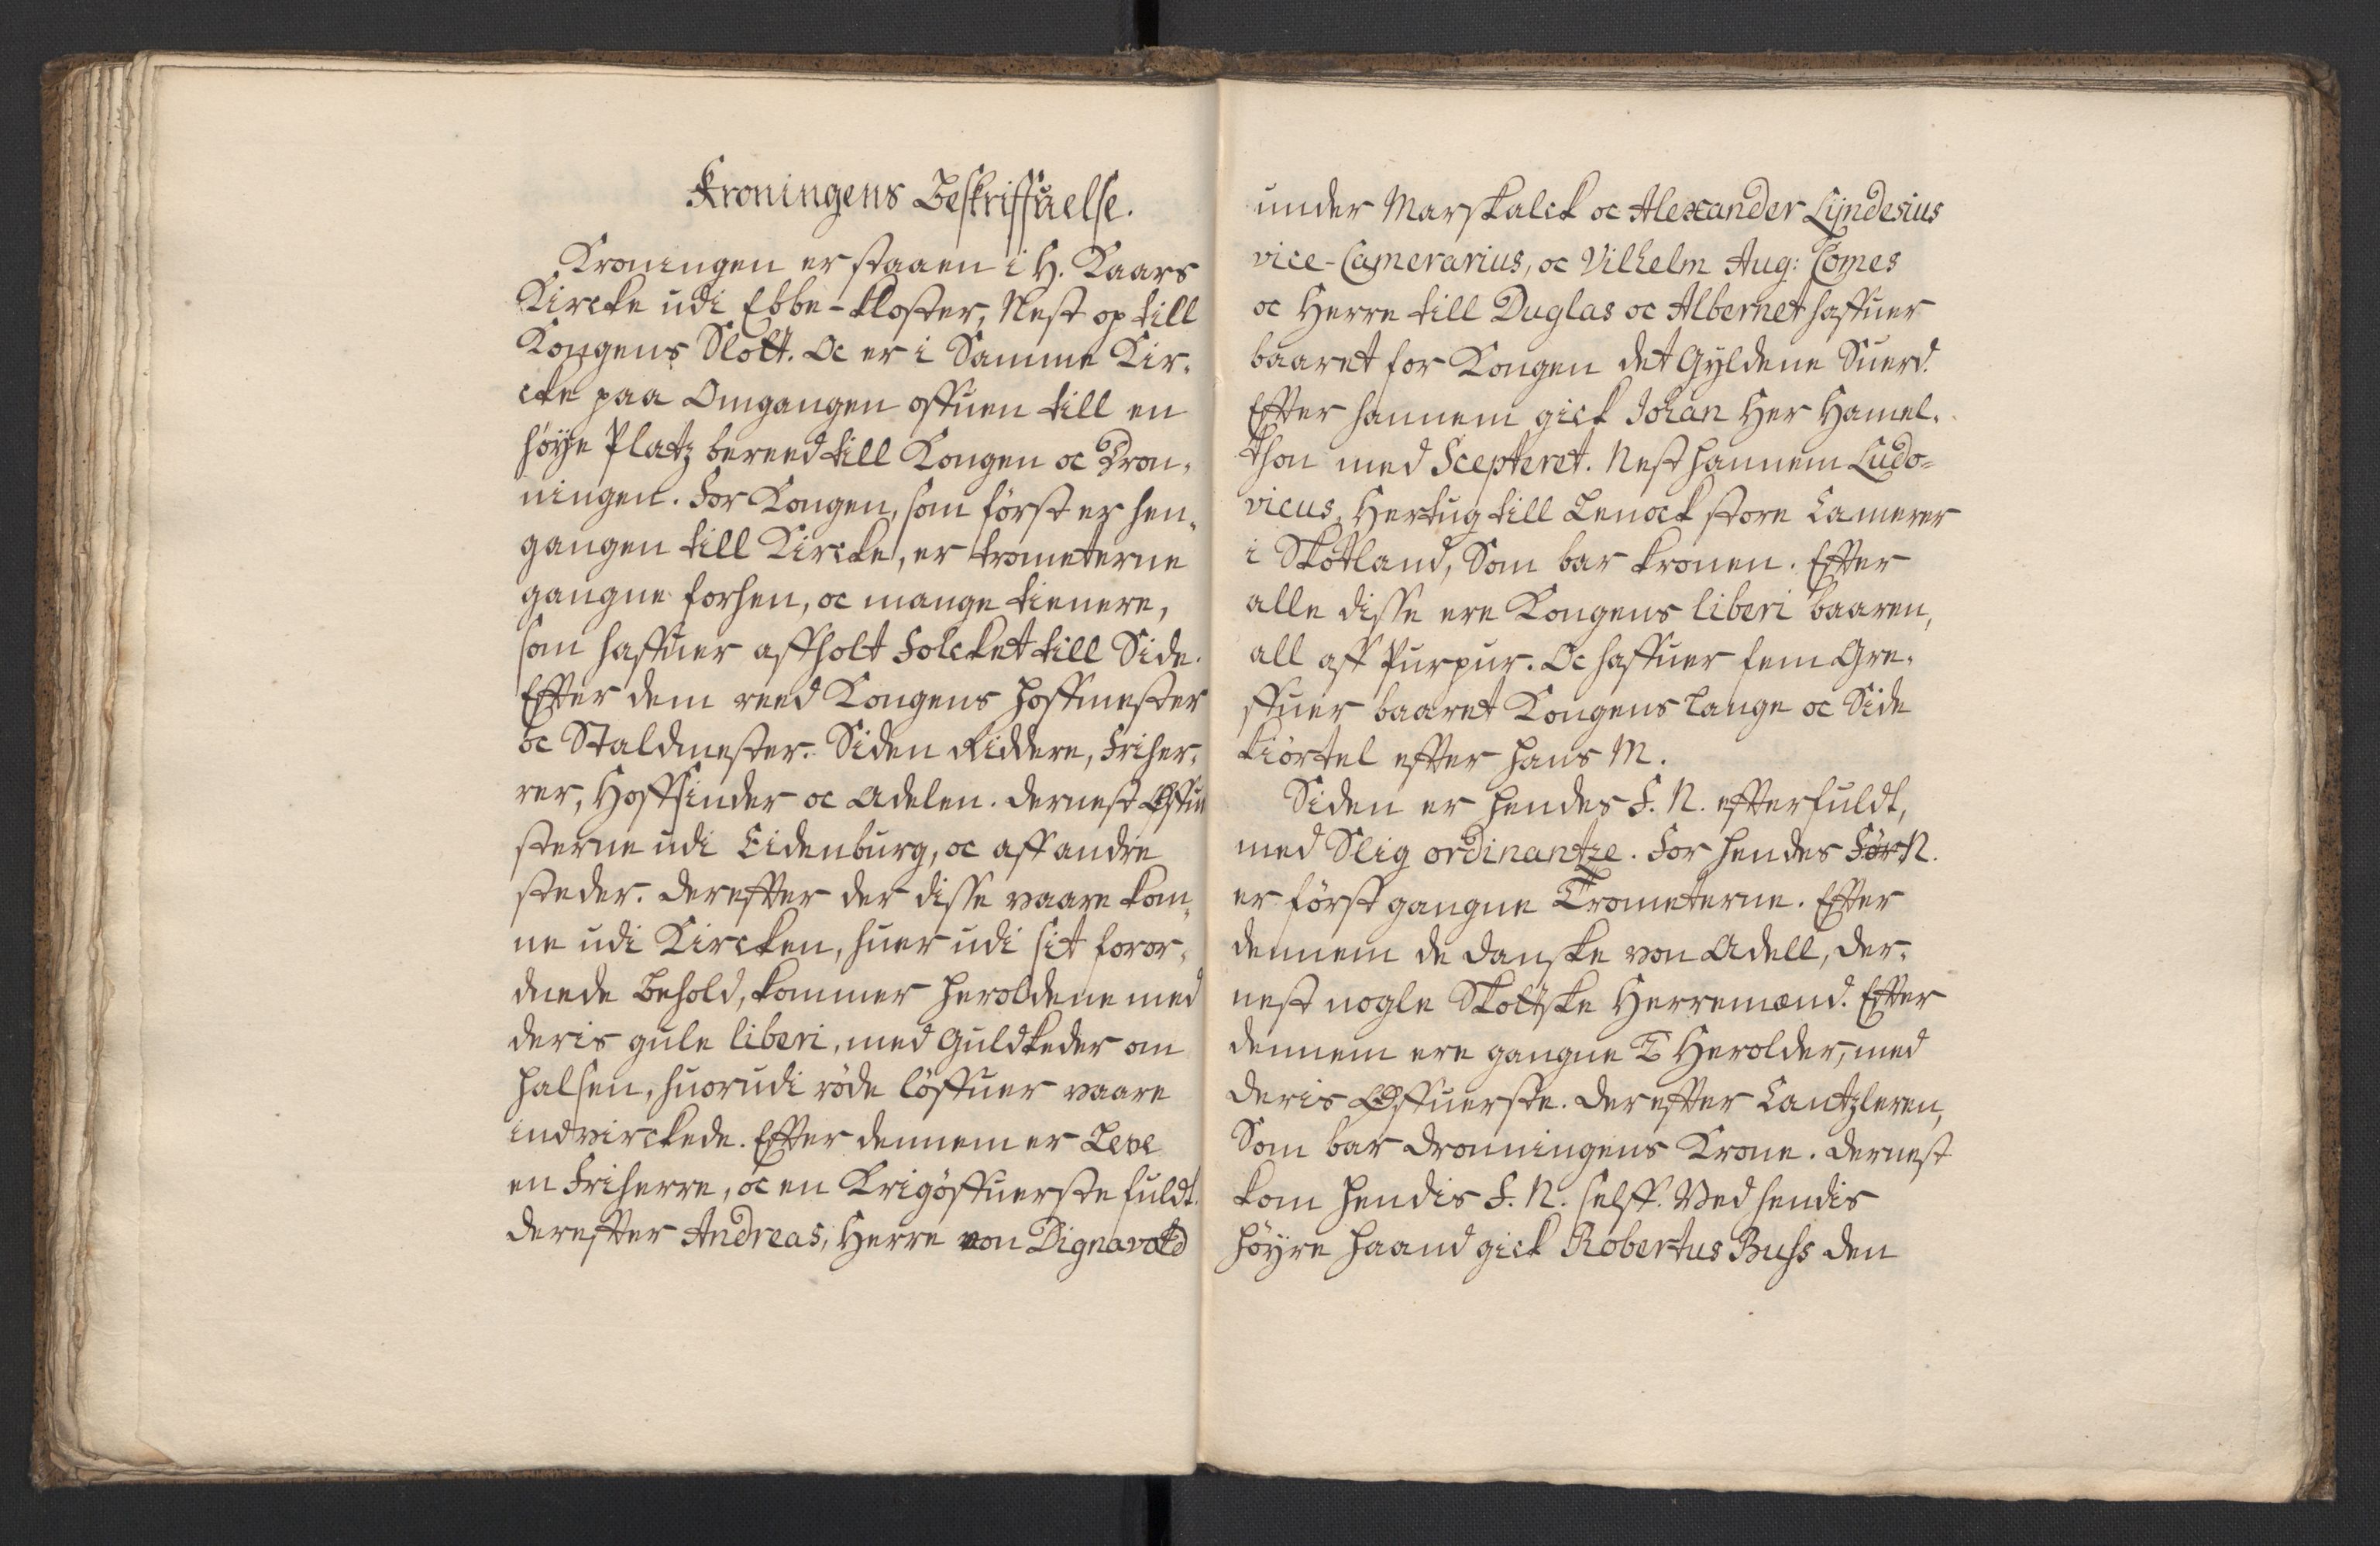 Kroningens Beskriffuelse.
Kroningen er staaen i H. Kaars
Kircke udi Ebbe-kloster, Nest op till
Kongens Slott. Oc er i Samme Kir-
cke paa Omgangen offuen till en
høye Platz bereed till Kongen oc Dron-
ningen. For Kongen, som først er hen-
gangen till Kircke, er trometerne
gangne forhen, oc mange tienere,
som haffuer affholt Folcket till Side.
Effter dem reed Kongens Hoffmester
oc Staldmester. Siden Riddere, Friher-
rer, Hoffsinder oc Adelen. Dernest Øffue
sterne udi Eidenburg, oc aff andre
steder. Dereffter der disse vaare kom-
ne udi Kircken, huer udi sit foror-
dnede behold, kommer Heroldene med
deris gule liberi, med Guldkeder om
Halsen, huorudi røde løffuer vaare
indvirckede. Effter dennem er Leve
en Friherre, oc en Krigøffuerste fuldt.
Dereffter Andreas, Herre von Dignavold
under Marskalck oc Alexander Lijndesius
vice-Camerarius, oc Vilhelm Aug: Comes
oc Herre till Duglas oc Albernet haffuer
baaret for Kongen det Gyldene Suerd.
Effter hannem gick Johan Her Hamel-
thon med Scepteret. Nest hannem Ludo-
vicus, Hertug till Lenock store Camerer
i Skotland, Som bar kronen. Effter
alle disse ere Kongens liberi baaren,
all aff Purpur. Oc haffuer fem Gre-
ffuer baaret Kongens lange oc Side
kiørtel effter Hans M.
Siden er Hendes F. N. effterfuldt,
med Slig ordinantze. For Hendes For N.
er først gangne Trometerne. Effter
dennem de Danske von Adell, Der-
nest nogle Skotske Herremænd. Effter
dennem ere gangne Herolder, med
Deris Øffuerste. Dereffter Cantzleren,
Som bar Dronningens Krone. Dernest
kom Hendis F. N. selff. Ved hendis
Høyre Haand gick Robertus Buss den